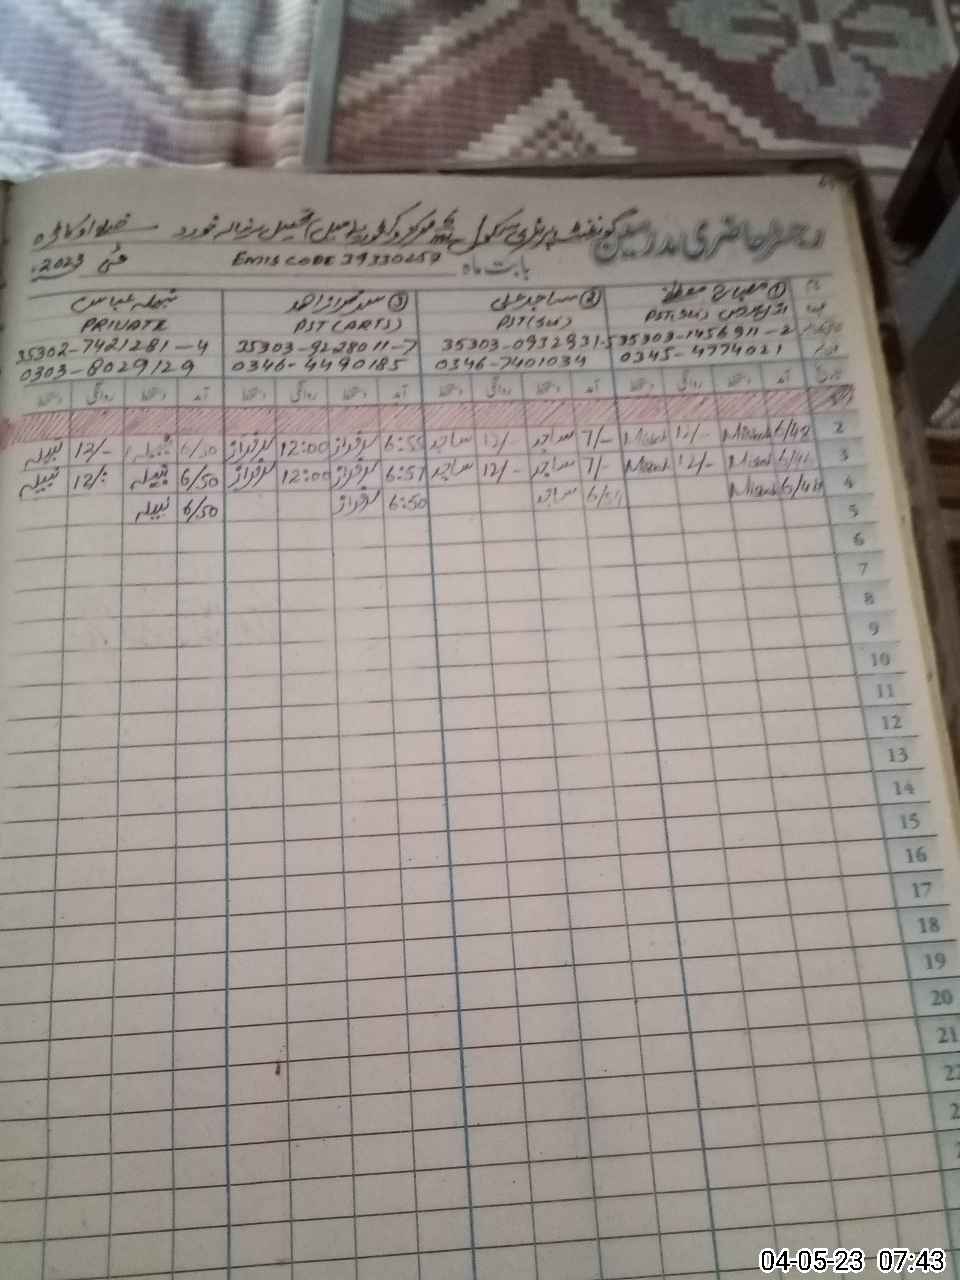 رجسٹر حاضری مدرسین گورنمنٹ پرائمری سکول تحصیل رینالہ خورد ضلع اوکاڑہ
بابت ماہ EMIS CODE 39330257 مئی 2023ء
① مصباح
② ساجد علی
③ سرفراز احمد
نبیلہ عباس
PST(Sci)
PST(Sci)
PST(ARTS)
PRIVATE
35303-1456911-2
35303-0932931-5
35303-9228011-7
35302-7421281-4
0345-4774021
0346-7401034
0346-4490185
0303-8029129
تاریخ آمد دستخط روانگی دستخط آمد دستخط روانگی دستخط آمد دستخط روانگی دستخط آمد دستخط روانگی دستخط
2 6/48 Misbah 12/- Misbah 7/- ساجد 12/- ساجد 6:55 سرفراز 12:00 سرفراز 6/50 نبیلہ 12/- نبیلہ
3 Misbah 12/- Misbah 7/- ساجد 12/- ساجد 6:57 سرفراز 12:00 سرفراز 6/50 نبیلہ 12/- نبیلہ
4 6/48 Misbah ساجد 6:50 سرفراز 6/50 نبیلہ
5
6
7
8
9
10
11
12
13
14
15
16
17
18
19
20
21
22
04-05-23 07:43